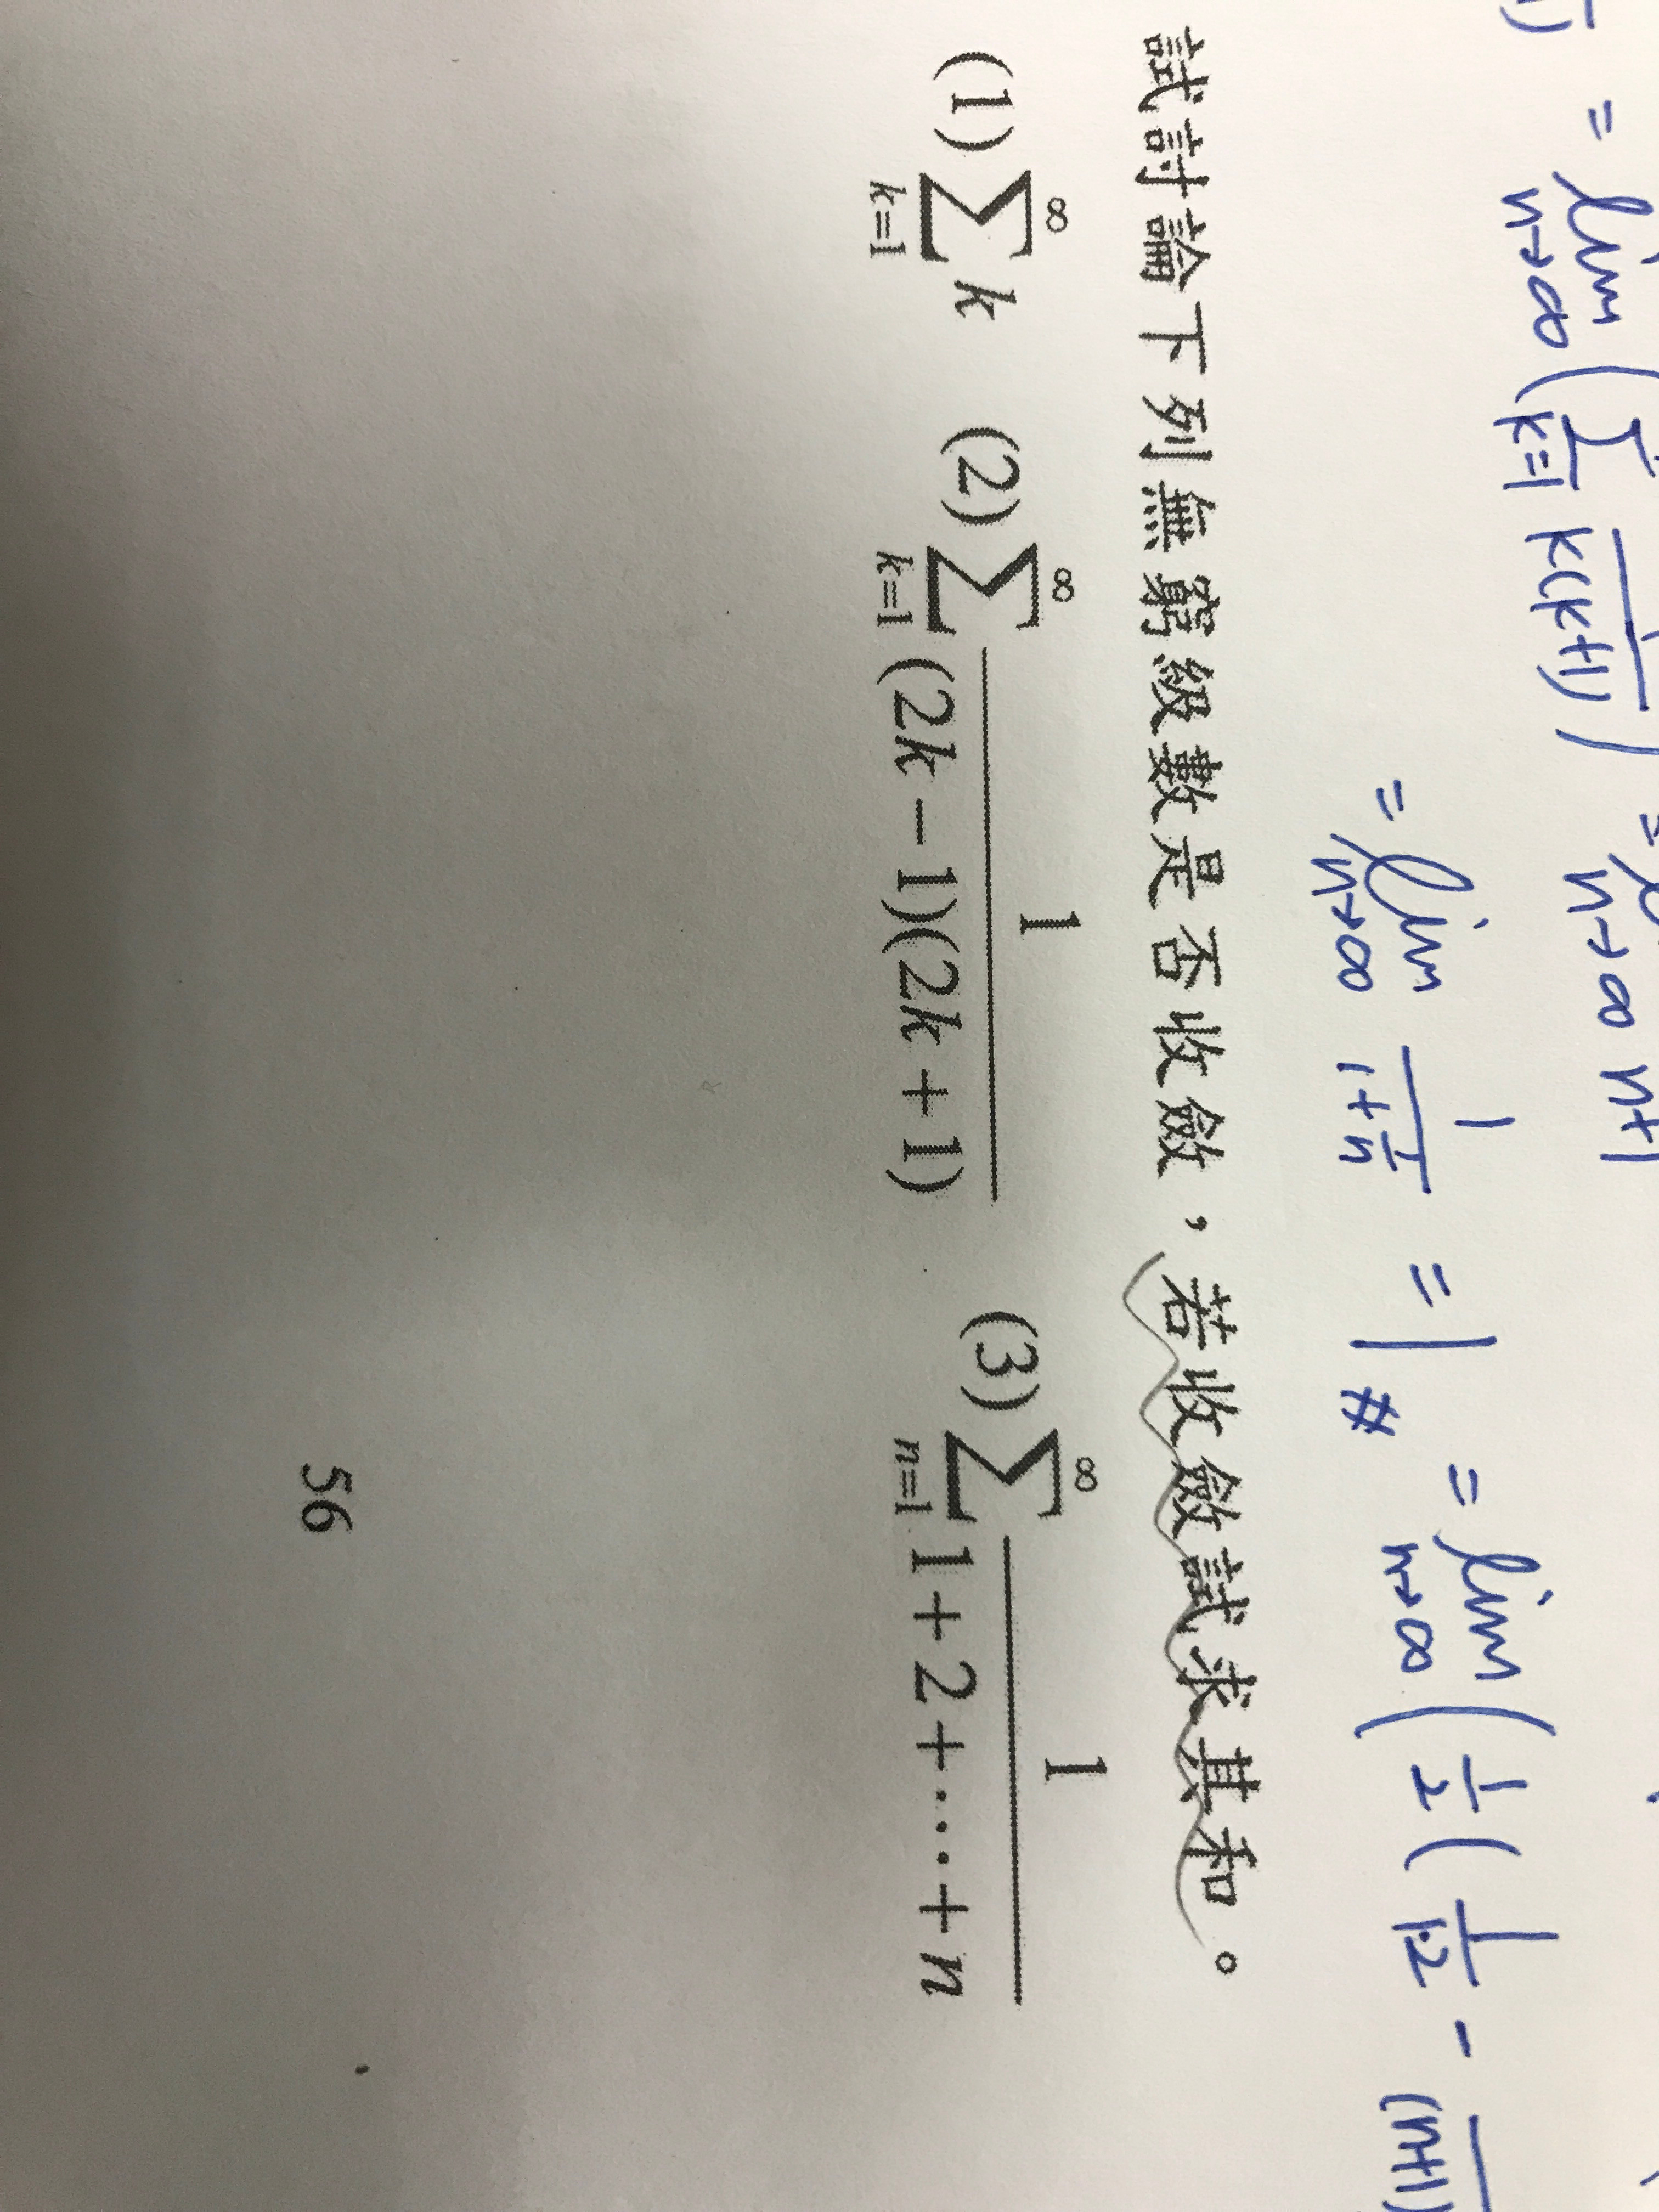 = lim n→∞ ( Σ k=1 1/k(k+1) ) = n→∞ n+1
= lim n→∞ 1/(1+1/n) = 1 # = lim n→∞ ( 1/2 ( 1/1·2 - (n+1)
試討論下列無窮級數是否收斂，若收斂試求其和。
(1) ∑_{k=1}^{∞} k (2) ∑_{k=1}^{∞} 1/((2k−1)(2k+1)) (3) ∑_{n=1}^{∞} 1/(1+2+⋯+n)
56